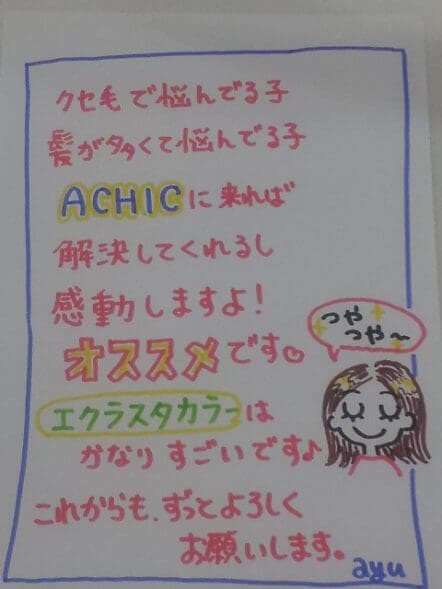 クセ毛で悩んでる子
髪が多くて悩んでる子
ACHICに来れば
解決してくれるし
感動しますよ!
オススメです♡
つや
つや〜
エクラスタカラーは
かなりすごいです♪
これからも、ずっとよろしく
お願いします。
ayu